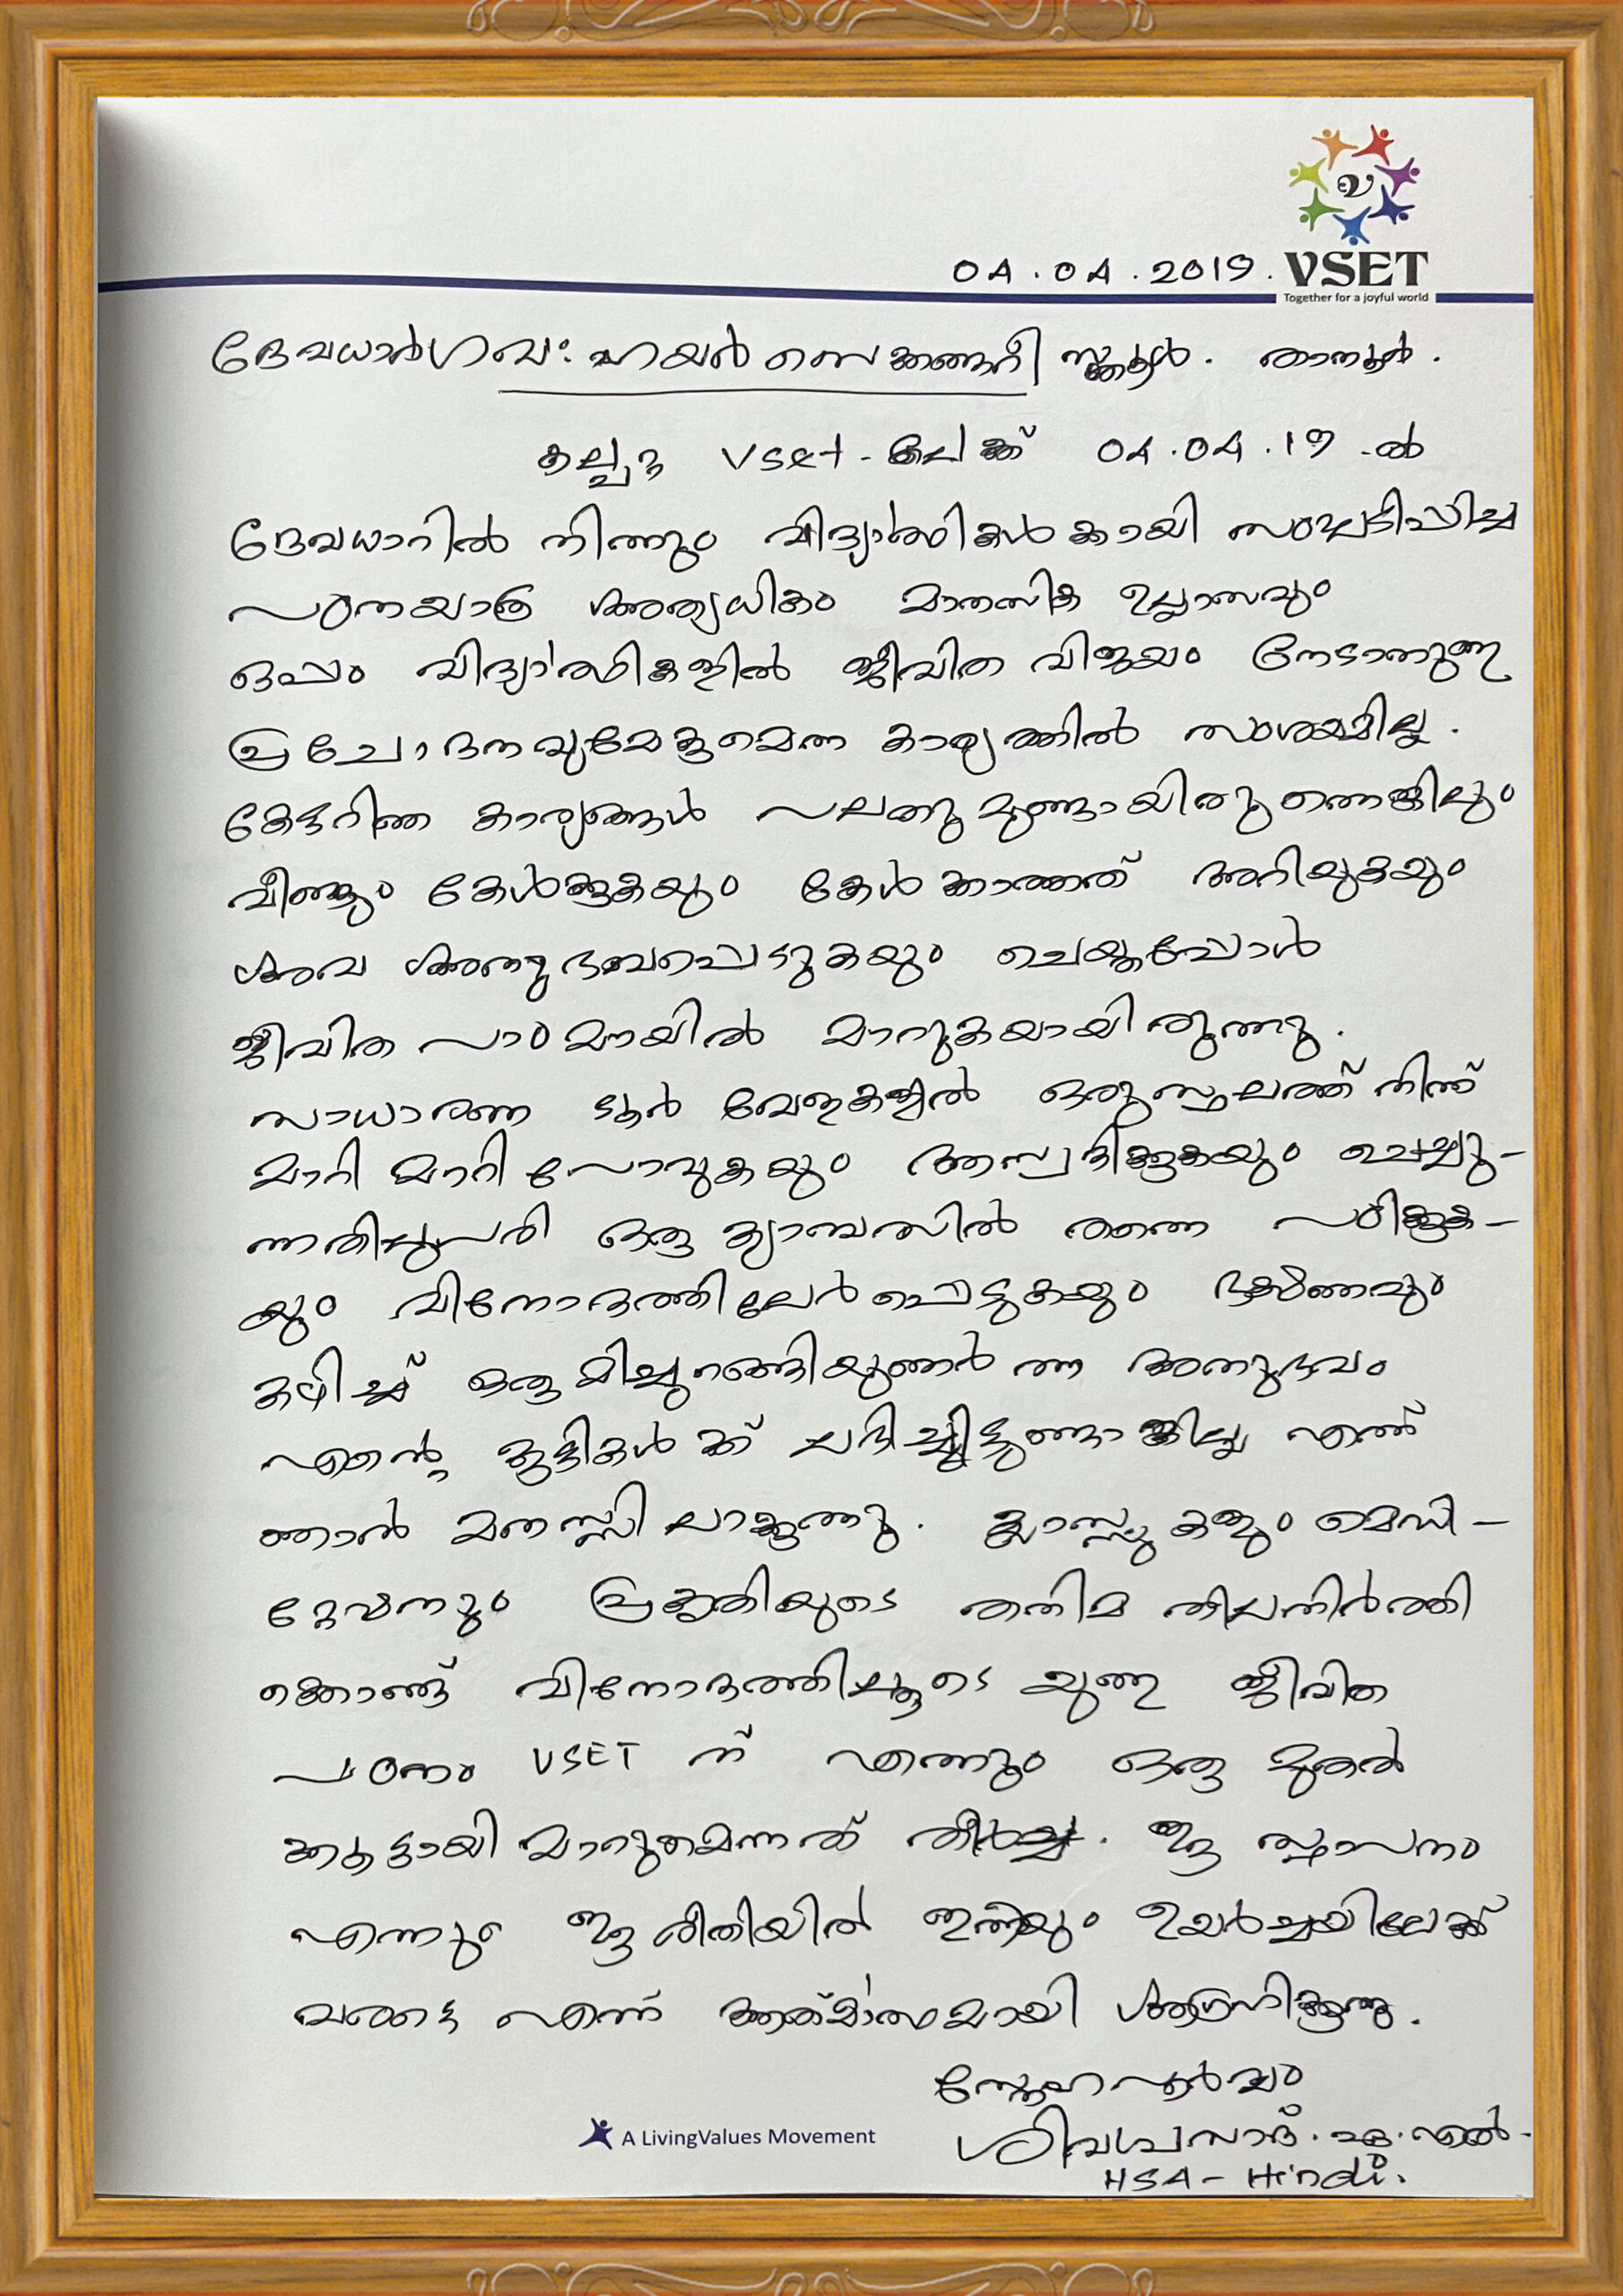 VSET
Together for a joyful world
04.04.2019.
ദേവധാർ ഗവ: ഹയർ സെക്കണ്ടറി സ്ക്കൂൾ. താനൂർ.
കല്പറ്റ VSet-ലേക്ക് 04.04.19-ൽ
ദേവധാറിൽ നിന്നും വിദ്യാർത്ഥികൾക്കായി സംഘടിപ്പിച്ച
പഠനയാത്ര അത്യധികം മാനസിക ഉല്ലാസവും
ഒപ്പം വിദ്യാർത്ഥികളിൽ ജീവിത വിജയം നേടാനുള്ള
പ്രചോദനവുമേകുമെന്ന കാര്യത്തിൽ സംശയമില്ല.
കേട്ടറിഞ്ഞ കാര്യങ്ങൾ പലതുമുണ്ടായിരുന്നെങ്കിലും
വീണ്ടും കേൾക്കുകയും കേൾക്കാത്തത് അറിയുകയും
അവ അനുഭവപ്പെടുകയും ചെയ്തപ്പോൾ
ജീവിത പാഠമായിൽ മാറുകയായിരുന്നു.
സാധാരണ ടൂർ വേളകളിൽ ഒരു സ്ഥലത്ത് നിന്ന്
മാറി മാറി പോവുകയും ആസ്വദിക്കുകയും ചെയ്യു-
ന്നതിലുപരി ഒരു ക്യാമ്പസിൽ തന്നെ പഠിക്കുക-
യും വിനോദത്തിലേർപ്പെടുകയും ഭക്ഷണവും
കഴിച്ച് ഒരുമിച്ചുറങ്ങിയുണർന്ന അനുഭവം
എന്റെ കുട്ടികൾക്ക് ലഭിച്ചിട്ടുണ്ടാകില്ല എന്ന്
ഞാൻ മനസ്സിലാക്കുന്നു. ക്ലാസ്സുകളും മെഡി-
റ്റേഷനും പ്രകൃതിയുടെ തനിമ നിലനിർത്തി
ക്കൊണ്ട് വിനോദത്തിലൂടെയുള്ള ജീവിത
പഠനം VSET ന് എന്നും ഒരു മുതൽ
ക്കൂട്ടായി മാറുമെന്നത് തീർച്ച. ഈ സ്ഥാപനം
എന്നും ഈ രീതിയിൽ ഇനിയും ഉയർച്ചയിലേക്ക്
വരട്ടെ എന്ന് ആത്മാർത്ഥമായി ആഗ്രഹിക്കുന്നു.
സ്നേഹപൂർവ്വം
ശിവപ്രസാദ്. എൽ.
HSA - Hindi.
A LivingValues Movement